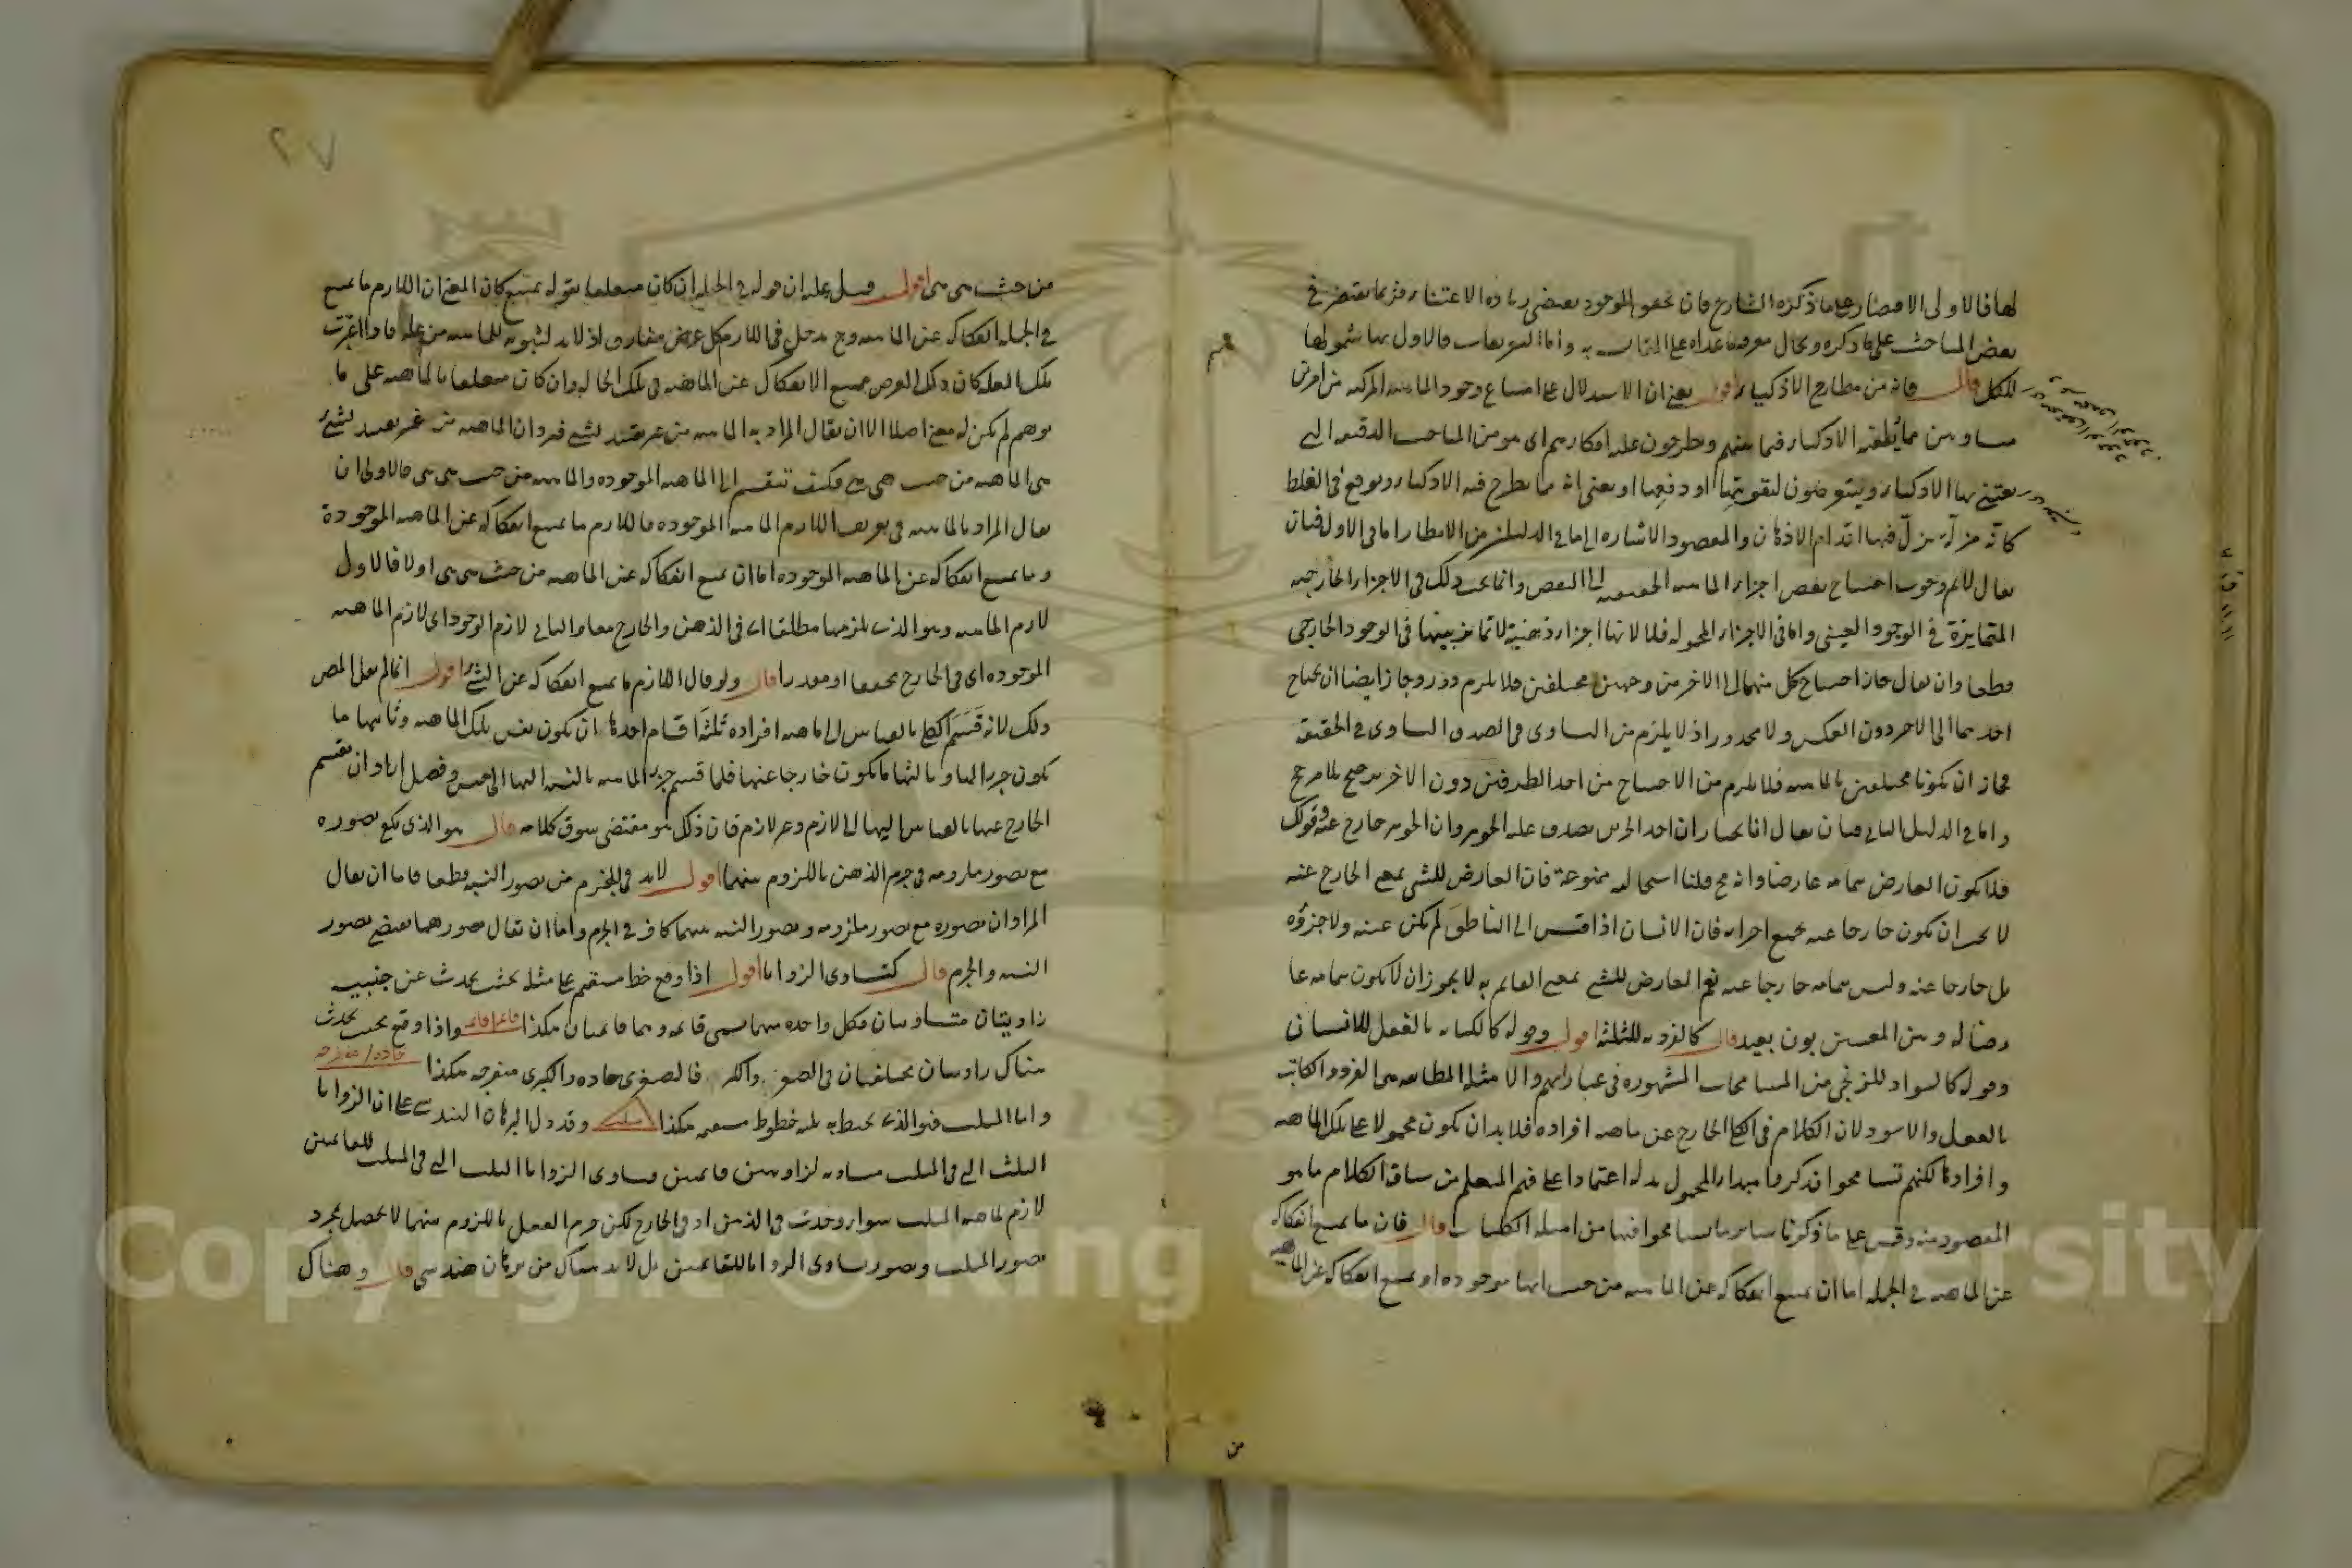 لها فالاولى الاقتصار على ما ذكره الشارح فان تحقق الموجود يقتضى زيادة الاعتناء فربما يقتصر فى
بعض المباحث على ما ذكره ويحال معرفة ما عداه على المقايسة به واما التعريفات فالاولى بها شمولها
للكل قال فانه من مطارح الاذكياء اقول يعنى ان الاستدلال على امتناع وجود الماهية المركبة من امرين
متساويين مما يلقيه الاذكياء فيما بينهم ويطرحون عليه افكارهم اى هو من المباحث الدقيقة التى
يعتنى بها الاذكياء ويتعرضون لتقويتها او دفعها او يعنى انه مما يطرح فيه الاذكياء ويوقع فى الغلط
كانه مزلة تزل فيها اقدام الاذهان والمقصود الاشارة الى ما فى الدليلين من الانظار اما فى الاول فبان
يقال لا نم وجوب احتياج بعض اجزاء الماهية الحقيقية الى البعض وانما يجب ذلك فى الاجزاء الخارجية
المتمايزة فى الوجود العينى واما فى الاجزاء المحمولة فلا لانها اجزاء ذهنية لا تمايز بينها فى الوجود الخارجى
قطعا وان يقال جاز احتياج كل منهما الى الاخر من وجهين مختلفين فلا يلزم دور وجاز ايضا ان يحتاج
احدهما الى الاخر دون العكس ولا محذور اذ لا يلزم من التساوى فى الصدق التساوى فى الحقيقة
فجاز ان يكونا مختلفين بالماهية فلا يلزم من الاحتياج من احد الطرفين دون الاخر ترجيح بلا مرجح
واما فى الدليل الثانى فبان يقال انا نختار ان احد الجزئين يصدق عليه الجوهر وان الجوهر خارج عنه وقولك
فلا يكون العارض بتمامه عارضا وانه مح قلنا استحالته ممنوعة فان العارض للشئ بمعنى الخارج عنه
لا يجب ان يكون خارجا عنه بجميع اجزائه فان الانسان اذا قيس الى الناطق لم يكن عينه ولا جزؤه
بل خارجا عنه وليس بتمامه خارجا عنه نعم العارض للشئ بمعنى القائم به لا يجوز ان لا يكون بتمامه عا
رضا له وبين المعنيين بون بعيد قال كالفردية للثلثة اقول وقوله كالكتابة بالفعل للانسان
وقوله كالسواد للزنجى من المسامحات المشهورة فى عباراتهم والامثلة المطابقة هى الفرد والكاتب
بالفعل والاسود لان الكلام فى الكلى الخارج عن ماهية افراده فلا بد ان يكون محمولا على تلك الماهية
وافرادها لكنهم تسامحوا فذكروا مبدأ المحمول بدله اعتمادا على فهم المتعلم من سياق الكلام ما هو
المقصود منه وقس على ما ذكرنا سائر ما تسامحوا فيها من امثلة الكليات قال فان ما يمتنع انفكاكه
عن الماهية فى الجملة اما ان يمتنع انفكاكه عن الماهية من حيث انها موجودة او يمتنع انفكاكه عن الماهية
من
٢٧
من حيث هى هى اقول قيل عليه ان قوله فى الجملة ان كان متعلقا بقوله يمتنع كان المعنى ان اللازم ما يمتنع
فى الجملة انفكاكه عن الماهية وح يدخل فى اللازم كل عرض مفارق اذ لا بد لثبوته للماهية من علة فاذا اعتبرت
تلك العلة كان ذلك العرض ممتنع الانفكاك عن الماهية فى تلك الحالة وان كان متعلقا بالماهية على ما
توهم لم يكن له معنى اصلا الا ان يقال المراد به الماهية من غير تقييد بشئ فيرد ان الماهية من غير تقييد بشئ
هى الماهية من حيث هى هى فكيف تنقسم الى الماهية الموجودة والماهية من حيث هى هى فالاولى ان
يقال المراد بالماهية فى تعريف اللازم الماهية الموجودة فاللازم ما يمتنع انفكاكه عن الماهية الموجودة
وما يمتنع انفكاكه عن الماهية الموجودة اما ان يمتنع انفكاكه عن الماهية من حيث هى هى اولا فالاول
لازم الماهية وهو الذى يلزمها مطلقا اى فى الذهن والخارج معا والثانى لازم الوجود اى لازم الماهية
الموجودة اى فى الخارج محققا او مقدرا قال ولو قال اللازم ما يمتنع انفكاكه عن الشئ اقول انما لم يقل المص
ذلك لانه قسم الكلى بالقياس الى ماهية افراده ثلثة اقسام احدها ان يكون نفس تلك الماهية وثانيها ما
يكون جزء لها وثالثها ما يكون خارجا عنها فلما قسم جزء الماهية بالنسبة اليها الى جنس وفصل اراد ان يقسم
الخارج عنها بالقياس اليها الى لازم وغير لازم فان ذلك هو مقتضى سوق كلامه قال هو الذى يكفى تصوره
مع تصور ملزومه فى جزم الذهن باللزوم بينهما اقول لا بد فى الجزم من تصور النسبة قطعا فاما ان يقال
المراد ان تصوره مع تصور ملزومه وتصور النسبة بينهما كاف فى الجزم واما ان يقال تصورهما يقتضى تصور
النسبة والجزم قال كتساوى الزوايا اقول اذا وقع خط مستقيم على مثله بحيث يحدث عن جنبيه
زاويتان متساويتان فكل واحدة منهما يسمى قائمة وهما قائمتان هكذا قائمة قائمة واذا وقع بحيث يحدث
هناك زاويتان مختلفتان فى الصغر والكبر فالصغرى حادة والكبرى منفرجة هكذا حادة / منفرجة
واما المثلث فهو الذى يحيط به ثلثة خطوط مستقيمة هكذا مثلث وقد دل البرهان الهندسى على ان الزوايا
الثلث التى فى المثلث مساوية لزاويتين قائمتين فتساوى الزوايا الثلث التى فى المثلث للقائمتين
لازم لماهية المثلث سواء وجدت فى الذهن او فى الخارج لكن جزم العقل باللزوم بينهما لا يحصل بمجرد
تصور المثلث وتصور تساوى الزوايا للقائمتين بل لا بد هناك من برهان هندسى قال وهناك
Copyright © King Saud University
1957